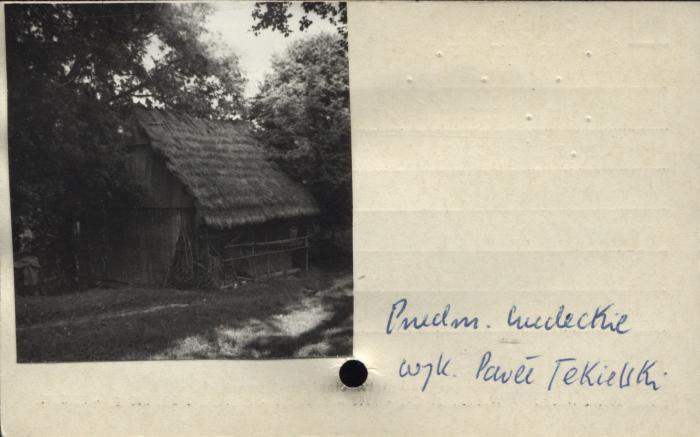 Przedm. Ludeckie
wyk. Paweł Tekielski